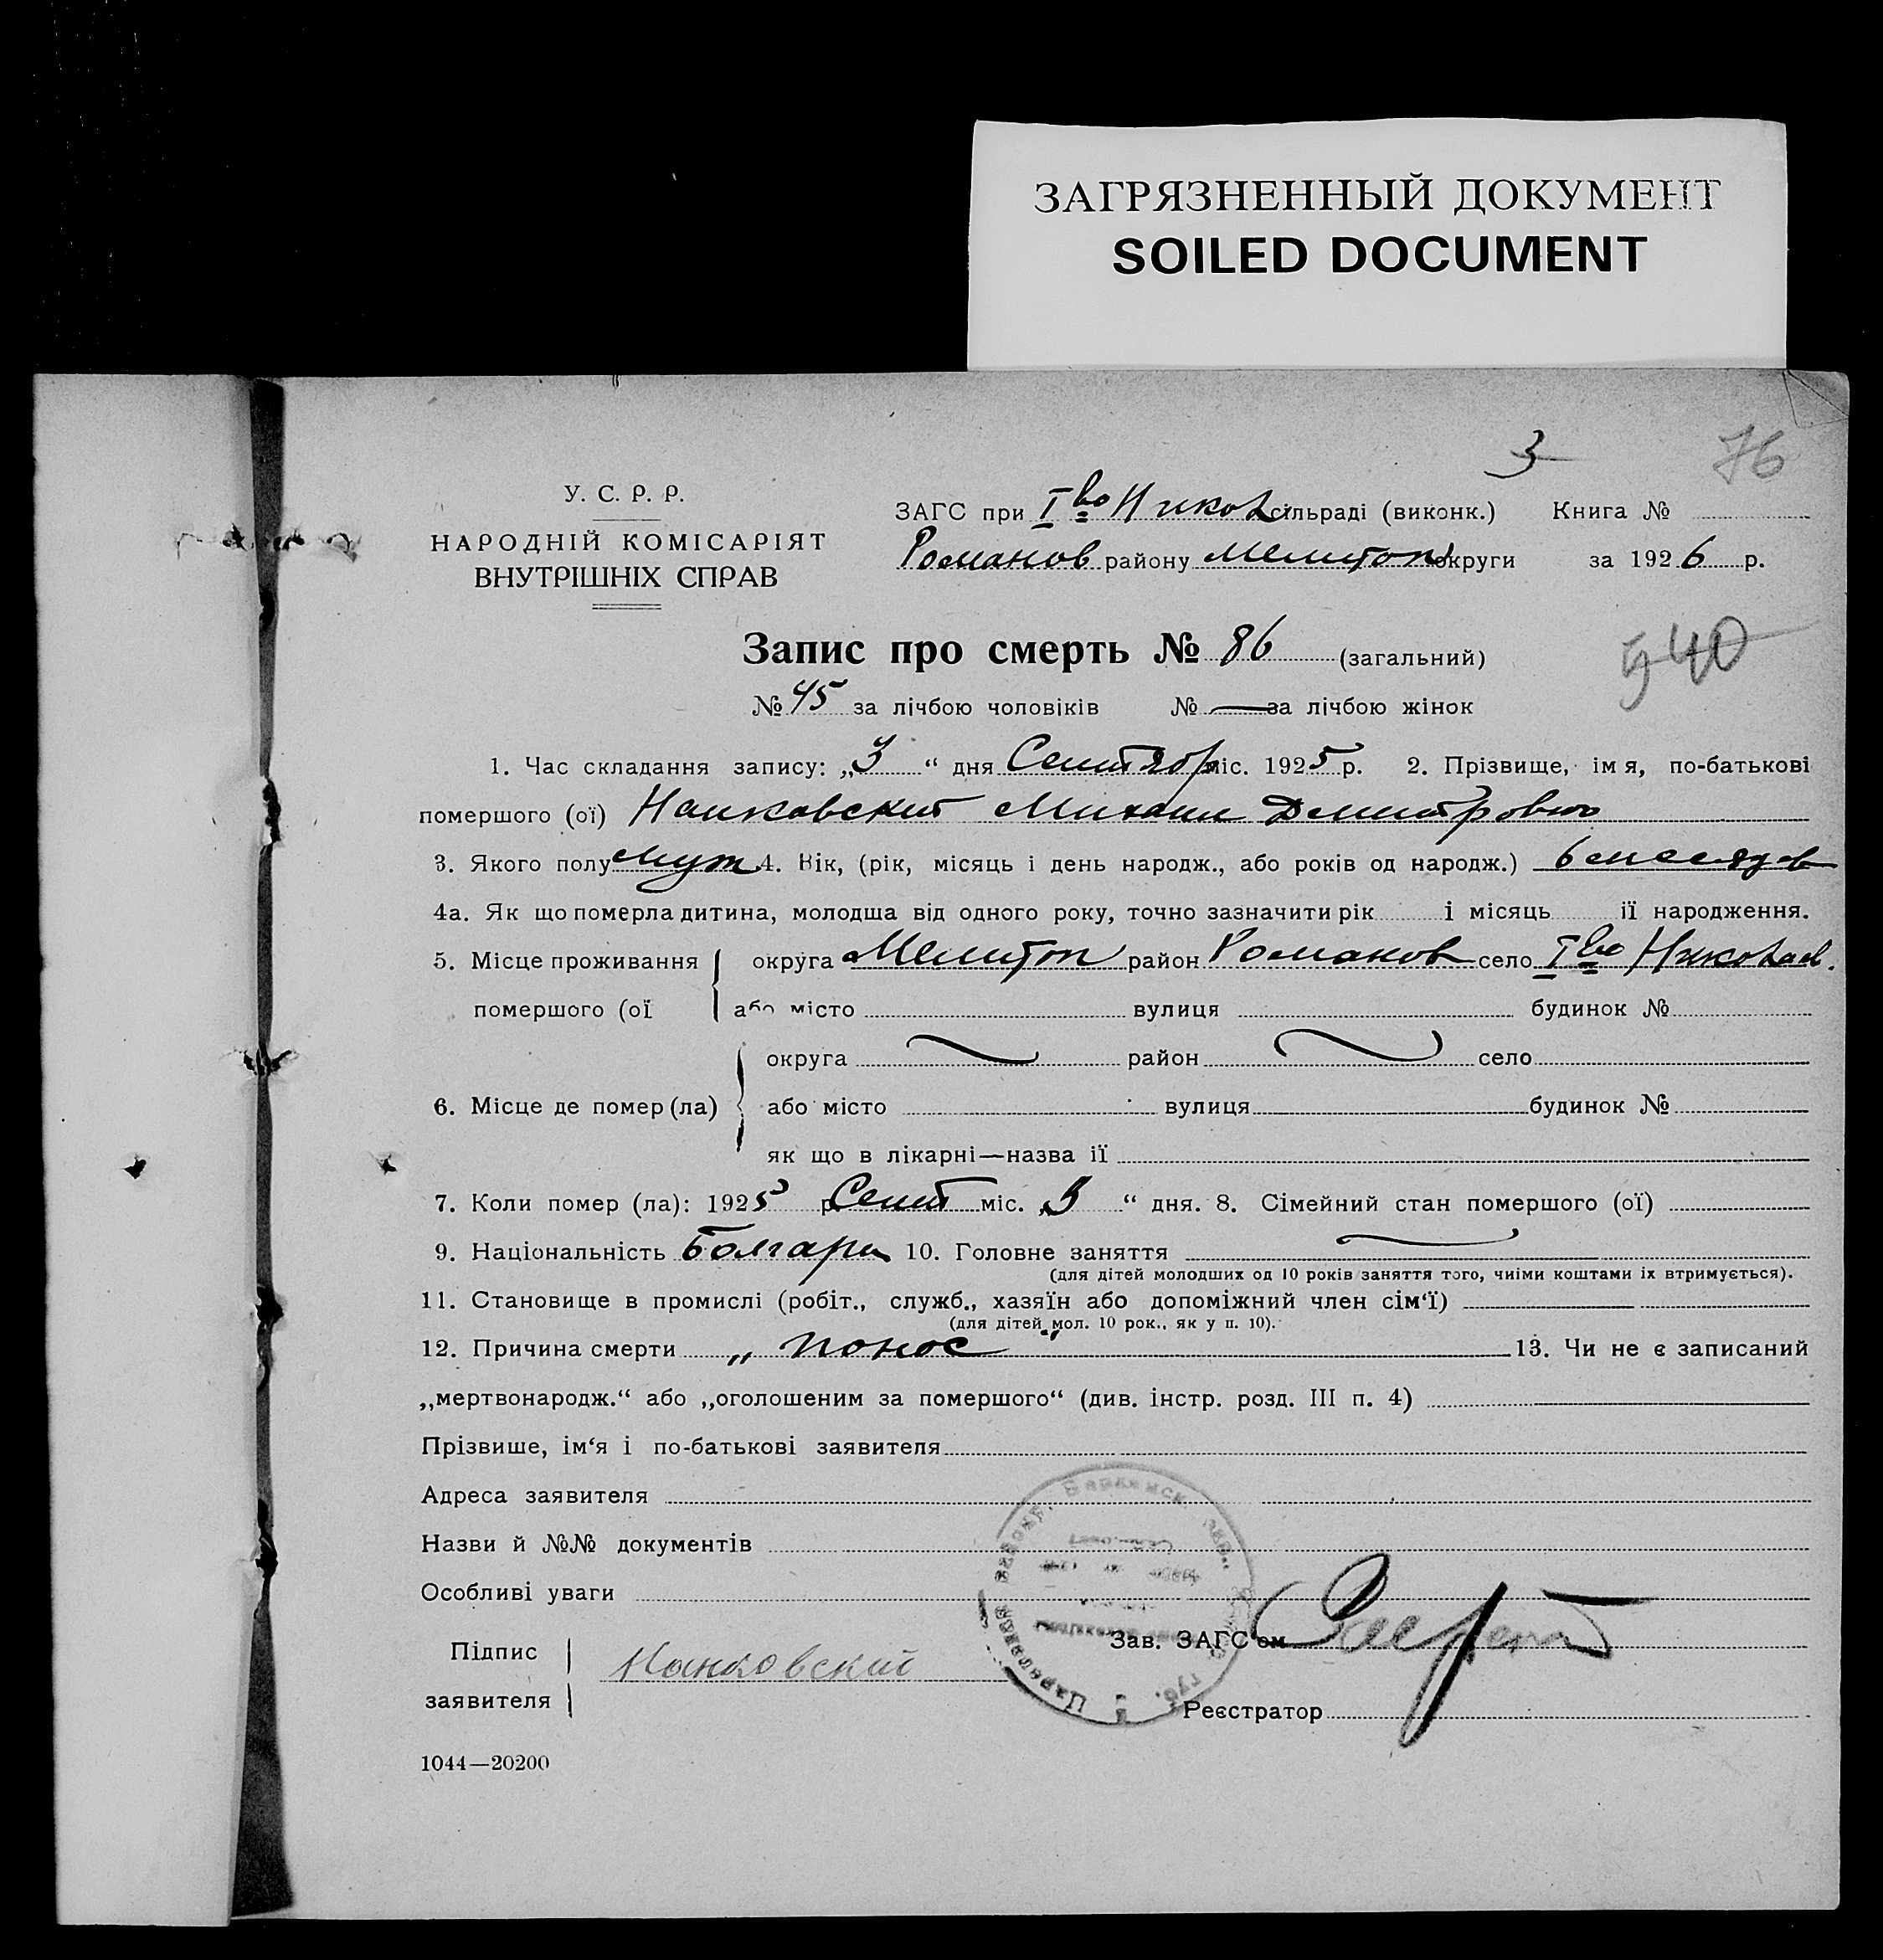 ЗАГРЯЗНЕННЫЙ ДОКУМЕНТ
SOILED DOCUMENT
3 76
У. С. Р. Р.
НАРОДНІЙ КОМІСАРІЯТ
ВНУТРІШНІХ СПРАВ
ЗАГС при Iво Никол сільраді (виконк.) Книга №
Романов району Мелитоп округи за 1926 р.
Запис про смерть № 86 (загальний)
540
№ 45 за лічбою чоловіків № — за лічбою жінок
1. Час складання запису: „3“ дня Сентябр міс. 1925 р. 2. Прізвище, імя, по-батькові
помершого (ої) Нанковский Михаил Демитрович
3. Якого полу муж 4. Вік, (рік, місяць і день народж., або років од народж.) 6 месяцев
4а. Як що померла дитина, молодша від одного року, точно зазначити рік і місяць її народження.
5. Місце проживання округа Мелитоп район Романов село Iво Николаев.
помершого (ої або місто вулиця будинок №
округа район село
6. Місце де помер (ла) або місто вулиця будинок №
як що в лікарні—назва її
7. Коли помер (ла): 1925 р Сент міс. „3“ дня. 8. Сімейний стан помершого (ої)
9. Національність Болгари 10. Головне заняття
(для дітей молодших од 10 років заняття того, чиїми коштами їх втримується).
11. Становище в промислі (робіт., служб., хазяїн або допоміжний член сім‘ї)
(для дітей мол. 10 рок., як у п. 10).
12. Причина смерти „понос“ 13. Чи не є записаний
„мертвонародж.“ або „оголошеним за помершого“ (див. інстр. розд. III п. 4)
Прізвише, ім‘я і по-батькові заявителя
Адреса заявителя
Назви й №№ документів
Особливі уваги
Підпис
заявителя
Нанковский
Зав. ЗАГС‘ом
Реєстратор
1044—20200